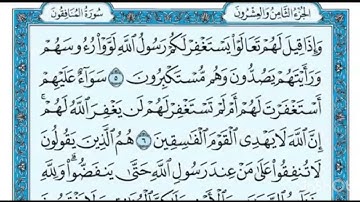 الجزء الثامن والعشرون سورة المنافقون
وَإِذَا قِيلَ لَهُمْ تَعَالَوْا۟ يَسْتَغْفِرْ لَكُمْ رَسُولُ ٱللَّهِ لَوَّوْا۟ رُءُوسَهُمْ
وَرَأَيْتَهُمْ يَصُدُّونَ وَهُم مُّسْتَكْبِرُونَ ٥ سَوَآءٌ عَلَيْهِمْ
أَسْتَغْفَرْتَ لَهُمْ أَمْ لَمْ تَسْتَغْفِرْ لَهُمْ لَن يَغْفِرَ ٱللَّهُ لَهُمْ ۚ
إِنَّ ٱللَّهَ لَا يَهْدِى ٱلْقَوْمَ ٱلْفَٰسِقِينَ ٦ هُمُ ٱلَّذِينَ يَقُولُونَ
لَا تُنفِقُوا۟ عَلَىٰ مَنْ عِندَ رَسُولِ ٱللَّهِ حَتَّىٰ يَنفَضُّوا۟ ۗ وَلِلَّهِ